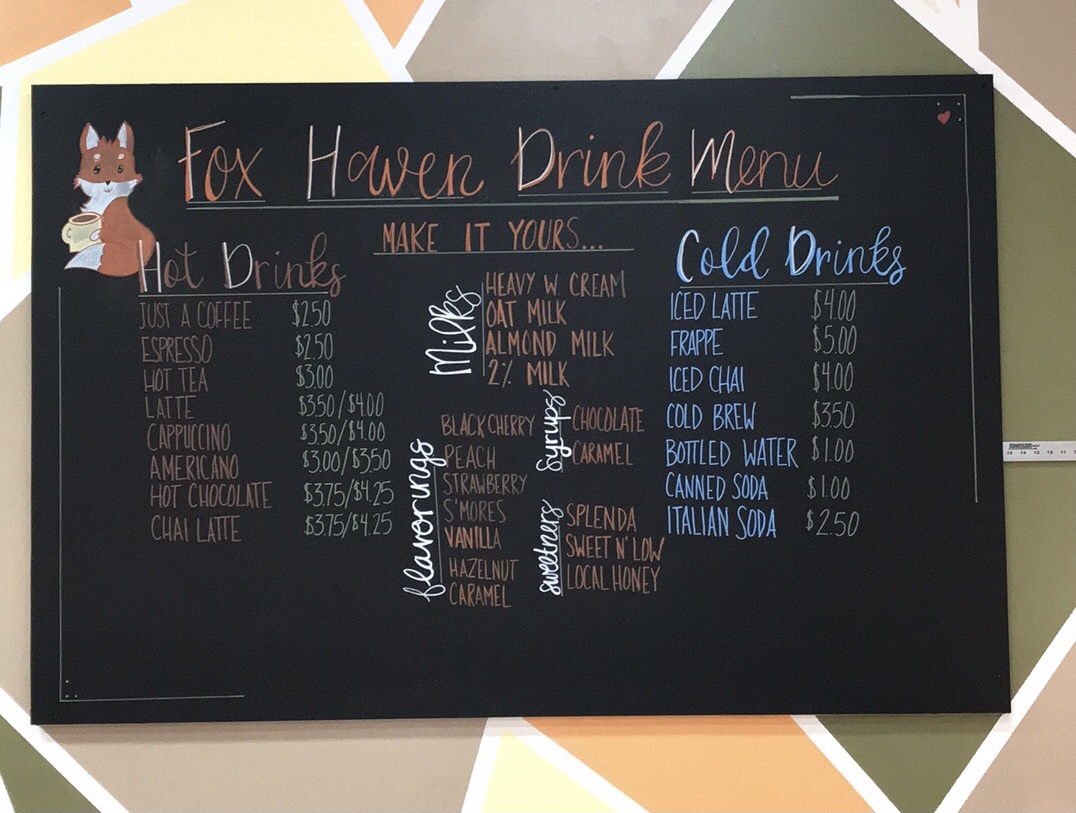 Fox Haven Drink Menu
MAKE IT YOURS...
Hot Drinks
JUST A COFFEE $2.50
ESPRESSO $2.50
HOT TEA $3.00
LATTE $350/$4.00
CAPPUCCINO $350/$4.00
AMERICANO $3.00/$350
HOT CHOCOLATE $375/$4.25
CHAI LATTE $375/$4.25
Milks
HEAVY W CREAM
OAT MILK
ALMOND MILK
2% MILK
flavorings
BLACK CHERRY
PEACH
STRAWBERRY
S'MORES
VANILLA
HAZELNUT
CARAMEL
Syrups
CHOCOLATE
CARAMEL
sweetners
SPLENDA
SWEET N' LOW
LOCAL HONEY
Cold Drinks
ICED LATTE $4.00
FRAPPE $5.00
ICED CHAI $4.00
COLD BREW $350
BOTTLED WATER $1.00
CANNED SODA $1.00
ITALIAN SODA $2.50